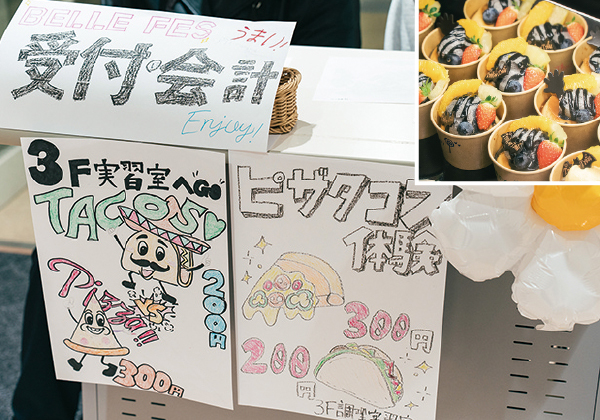 BELLE FES
うまい!!
受付・会計
Enjoy!!
3F実習室へGO
TACOS
VS
Pizza!!
200円
300円
ピザタコス
体験
300円
200円
3F調理室実習室